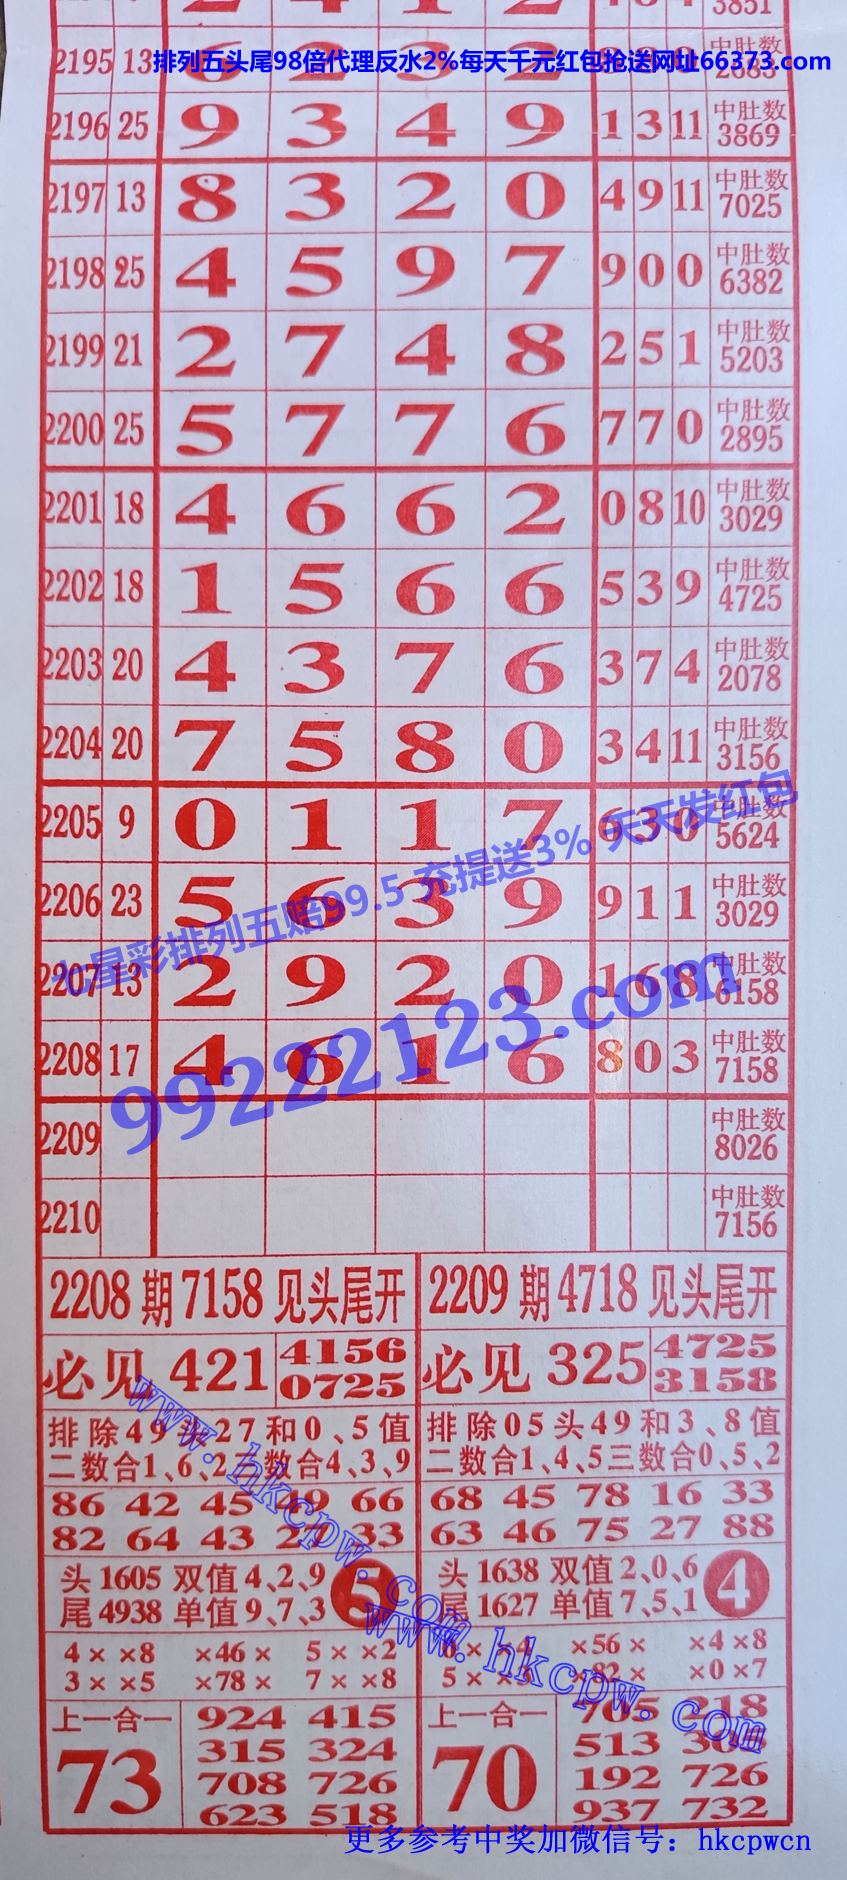 3851
排列五头尾98倍代理反水2%每天千元红包抢送网址66373.com
2195 13 6 2 3 2 中肚数 2683
2196 25 9 3 4 9 1 3 11 中肚数 3869
2197 13 8 3 2 0 4 9 11 中肚数 7025
2198 25 4 5 9 7 9 0 0 中肚数 6382
2199 21 2 7 4 8 2 5 1 中肚数 5203
2200 25 5 7 7 6 7 7 0 中肚数 2895
2201 18 4 6 6 2 0 8 10 中肚数 3029
2202 18 1 5 6 6 5 3 9 中肚数 4725
2203 20 4 3 7 6 3 7 4 中肚数 2078
2204 20 7 5 8 0 3 4 11 中肚数 3156
2205 9 0 1 1 7 6 3 0 中肚数 5624
2206 23 5 6 3 9 9 1 1 中肚数 3029
七星彩排列五赔99.5 充提送3% 天天发红包
2207 13 2 9 2 0 1 6 8 中肚数 6158
99222123.com
2208 17 4 6 1 6 8 0 3 中肚数 7158
2209 中肚数 8026
2210 中肚数 7156
2208期7158见头尾开
必见421 4156 0725
排除49头27和0、5值
二数合1、6、2三数合4、3,9
86 42 45 49 66
82 64 43 27 33
头1605 双值4、2、9
尾4938 单值9、7、3
5
4××8 ×46× 5××2
3××5 ×78× 7××8
上一合一
73
924 415
315 324
708 726
623 518
2209期4718见头尾开
必见325 4725 3158
排除05头49和3、8值
二数合1、4、5三数合0、5、2
68 45 78 16 33
63 46 75 27 88
头1638 双值2、0、6
尾1627 单值7、5、1
4
×56× ×4×8
×82× ×0×7
上一合一
70
705 218
513
192 726
937 732
www.hkcpw.com
www.hkcpw.com
更多参考中奖加微信号：hkcpwcn